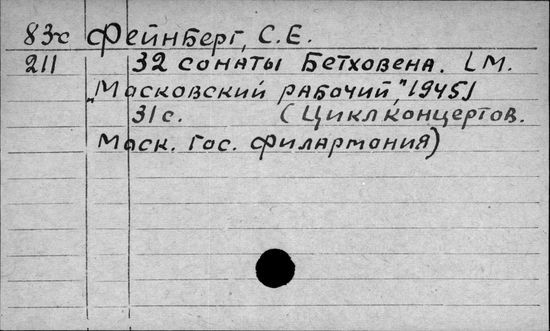 83-с Фейнберг, С.Е.
211 32 сонаты Бетховена. [М.
„Московский рабочий," 1945]
31с. (Цикл концертов.
Моск. Гос. филармония)